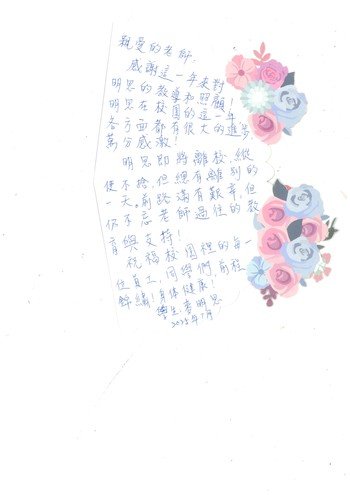 親愛的老師:
感謝這一年來對
明思的教導和照顧!
明思在校園的這一年
各方面都有很大的進步
萬分感激!
明思即將離校,縱
使不捨,但總有離別的
一天。前路滿有艱辛,但
仍不忘老師過往的教
育與支持!
祝福校園裡的每一
位員工,同學們前程
錦繡!身體健康!
學生:李明思
2025年7月